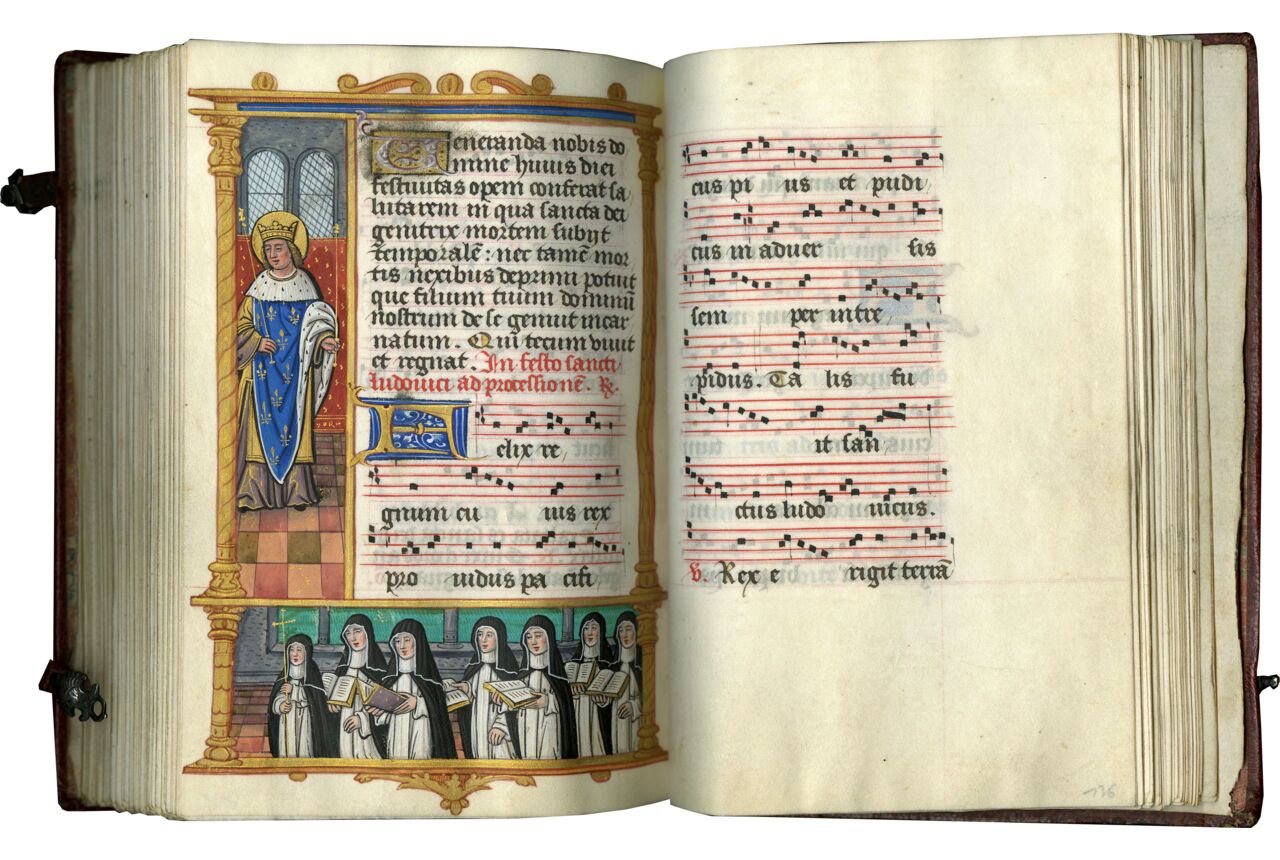 Veneranda nobis do
mine huius diei
festiuitas opem conferat sa
lutarem in qua sancta dei
genitrix mortem subijt
temporalē : nec tamē mor
tis nexibus deprimi potuit
que filium tuum dominū
nostrum de se genuit incar
natum. Qui tecum viuit
et regnat. In festo sancti
ludouici ad processionē. ℟.
Felix re
gnum cu ius rex
pro uidus pa cifi
cus pi us et pudi
cus in aduer sis
sem per intre
pidus. Ta lis fu
it san
ctus ludo uicus.
v. Rex e rigit terrā
136